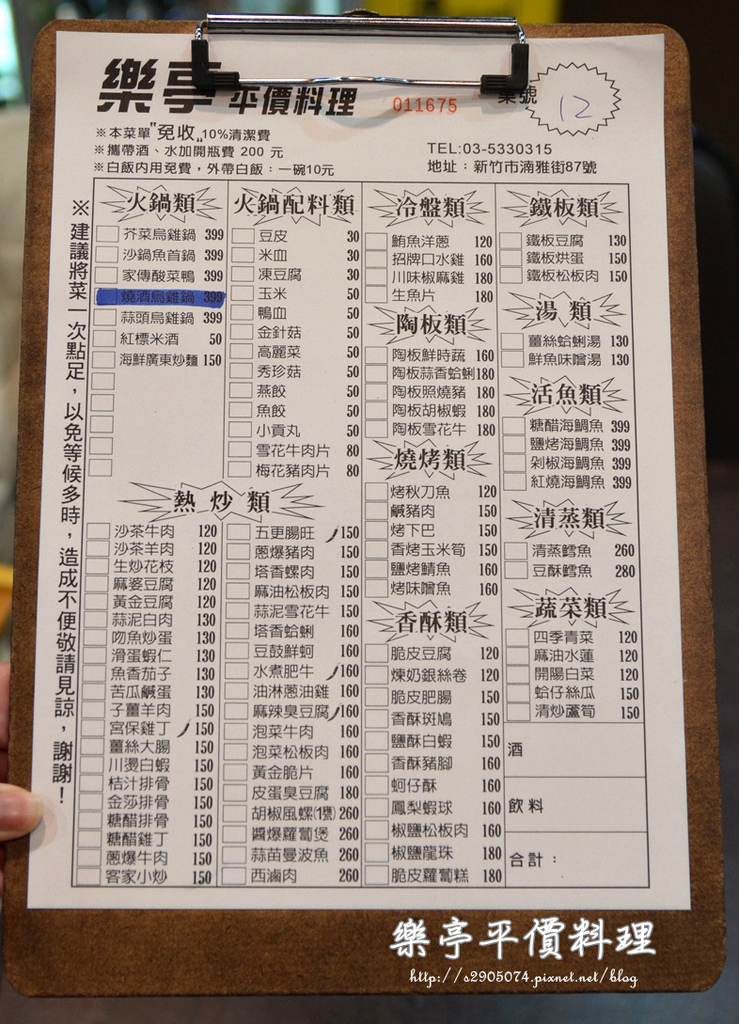 樂亭 平價料理 011675 桌號 12
※本菜單"免收"10%清潔費
※攜帶酒、水加開瓶費 200 元
※白飯內用免費，外帶白飯：一碗10元
TEL:03-5330315
地址：新竹市湳雅街87號
※建議將菜一次點足，以免等候多時，造成不便敬請見諒，謝謝！
火鍋類
芥菜烏雞鍋 399
沙鍋魚首鍋 399
家傳酸菜鴨 399
燒酒烏雞鍋 399
蒜頭烏雞鍋 399
紅標米酒 50
海鮮廣東炒麵 150
火鍋配料類
豆皮 30
米血 30
凍豆腐 30
玉米 50
鴨血 50
金針菇 50
高麗菜 50
秀珍菇 50
燕餃 50
魚餃 50
小貢丸 50
雪花牛肉片 80
梅花豬肉片 80
冷盤類
鮪魚洋蔥 120
招牌口水雞 160
川味椒麻雞 180
生魚片 180
陶板類
陶板鮮時蔬 160
陶板蒜香蛤蜊 180
陶板照燒豬 180
陶板胡椒蝦 180
陶板雪花牛 180
燒烤類
烤秋刀魚 120
鹹豬肉 150
烤下巴 150
香烤玉米筍 150
鹽烤鯖魚 160
烤味噌魚 160
香酥類
脆皮豆腐 120
煉奶銀絲卷 120
脆皮肥腸 150
香酥斑鳩 150
鹽酥白蝦 150
香酥豬腳 160
蚵仔酥 160
鳳梨蝦球 160
椒鹽松板肉 160
椒鹽龍珠 180
脆皮蘿蔔糕 180
鐵板類
鐵板豆腐 130
鐵板烘蛋 150
鐵板松板肉 150
湯類
薑絲蛤蜊湯 130
鮮魚味噌湯 130
活魚類
糖醋海鯛魚 399
鹽烤海鯛魚 399
剁椒海鯛魚 399
紅燒海鯛魚 399
清蒸類
清蒸鱈魚 260
豆酥鱈魚 280
蔬菜類
四季青菜 120
麻油水蓮 120
開陽白菜 120
蛤仔絲瓜 150
清炒蘆筍 150
酒
飲料
合計：
熱炒類
沙茶牛肉 120
沙茶羊肉 120
生炒花枝 120
麻婆豆腐 120
黃金豆腐 120
蒜泥白肉 130
吻魚炒蛋 130
滑蛋蝦仁 130
魚香茄子 130
苦瓜鹹蛋 130
子薑羊肉 150
宮保雞丁 150
薑絲大腸 150
川燙白蝦 150
桔汁排骨 150
金莎排骨 150
糖醋排骨 150
糖醋雞丁 150
蔥爆牛肉 150
客家小炒 150
五更腸旺 150
蔥爆豬肉 150
塔香螺肉 150
麻油松板肉 150
蒜泥雪花牛 150
塔香蛤蜊 160
豆鼓鮮蚵 160
水煮肥牛 160
油淋蔥油雞 160
麻辣臭豆腐 160
泡菜牛肉 160
泡菜松板肉 160
黃金脆片 160
皮蛋臭豆腐 180
胡椒風螺(1隻) 260
醬爆蘿蔔煲 260
蒜苗曼波魚 260
西滷肉 260
樂亭平價料理
http://s2905074.pixnet.net/blog